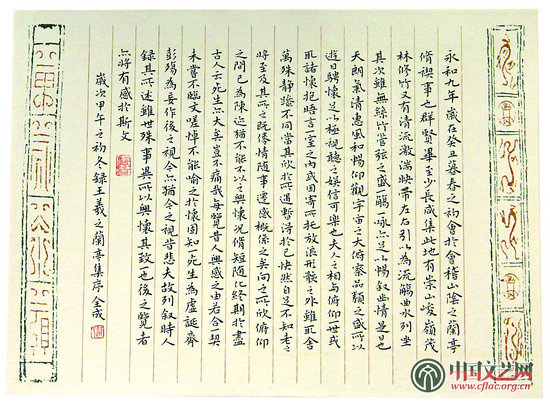 永和九年歲在癸丑暮春之初會於會稽山陰之蘭亭
脩禊事也群賢畢至少長咸集此地有崇山峻嶺茂
林修竹又有清流激湍映帶左右引以為流觴曲水列坐
其次雖無絲竹管弦之盛一觴一詠亦足以暢叙幽情是日也
天朗氣清惠風和暢仰觀宇宙之大俯察品類之盛所以
遊目騁懷足以極視聽之娛信可樂也夫人之相與俯仰一世或
取諸懷抱晤言一室之內或因寄所托放浪形骸之外雖取舍
萬殊靜躁不同當其欣於所遇暫得於己快然自足不知老之
將至及其所之既倦情隨事遷感概係之矣向之所欣俯仰
之間已為陳迹猶不能不以之興懷況脩短隨化終期於盡
古人云死生亦大矣豈不痛哉每覽昔人興感之由若合一契
未嘗不臨文嗟悼不能喻之於懷固知一死生為虛誕齊
彭殤為妄作後之視今亦猶今之視昔悲夫故列叙時人
録其所述雖世殊事異所以興懷其致一也後之覽者
亦將有感於斯文
歲次甲午之初冬録王羲之蘭亭集序金戎
中国文艺网
www.cflac.org.cn